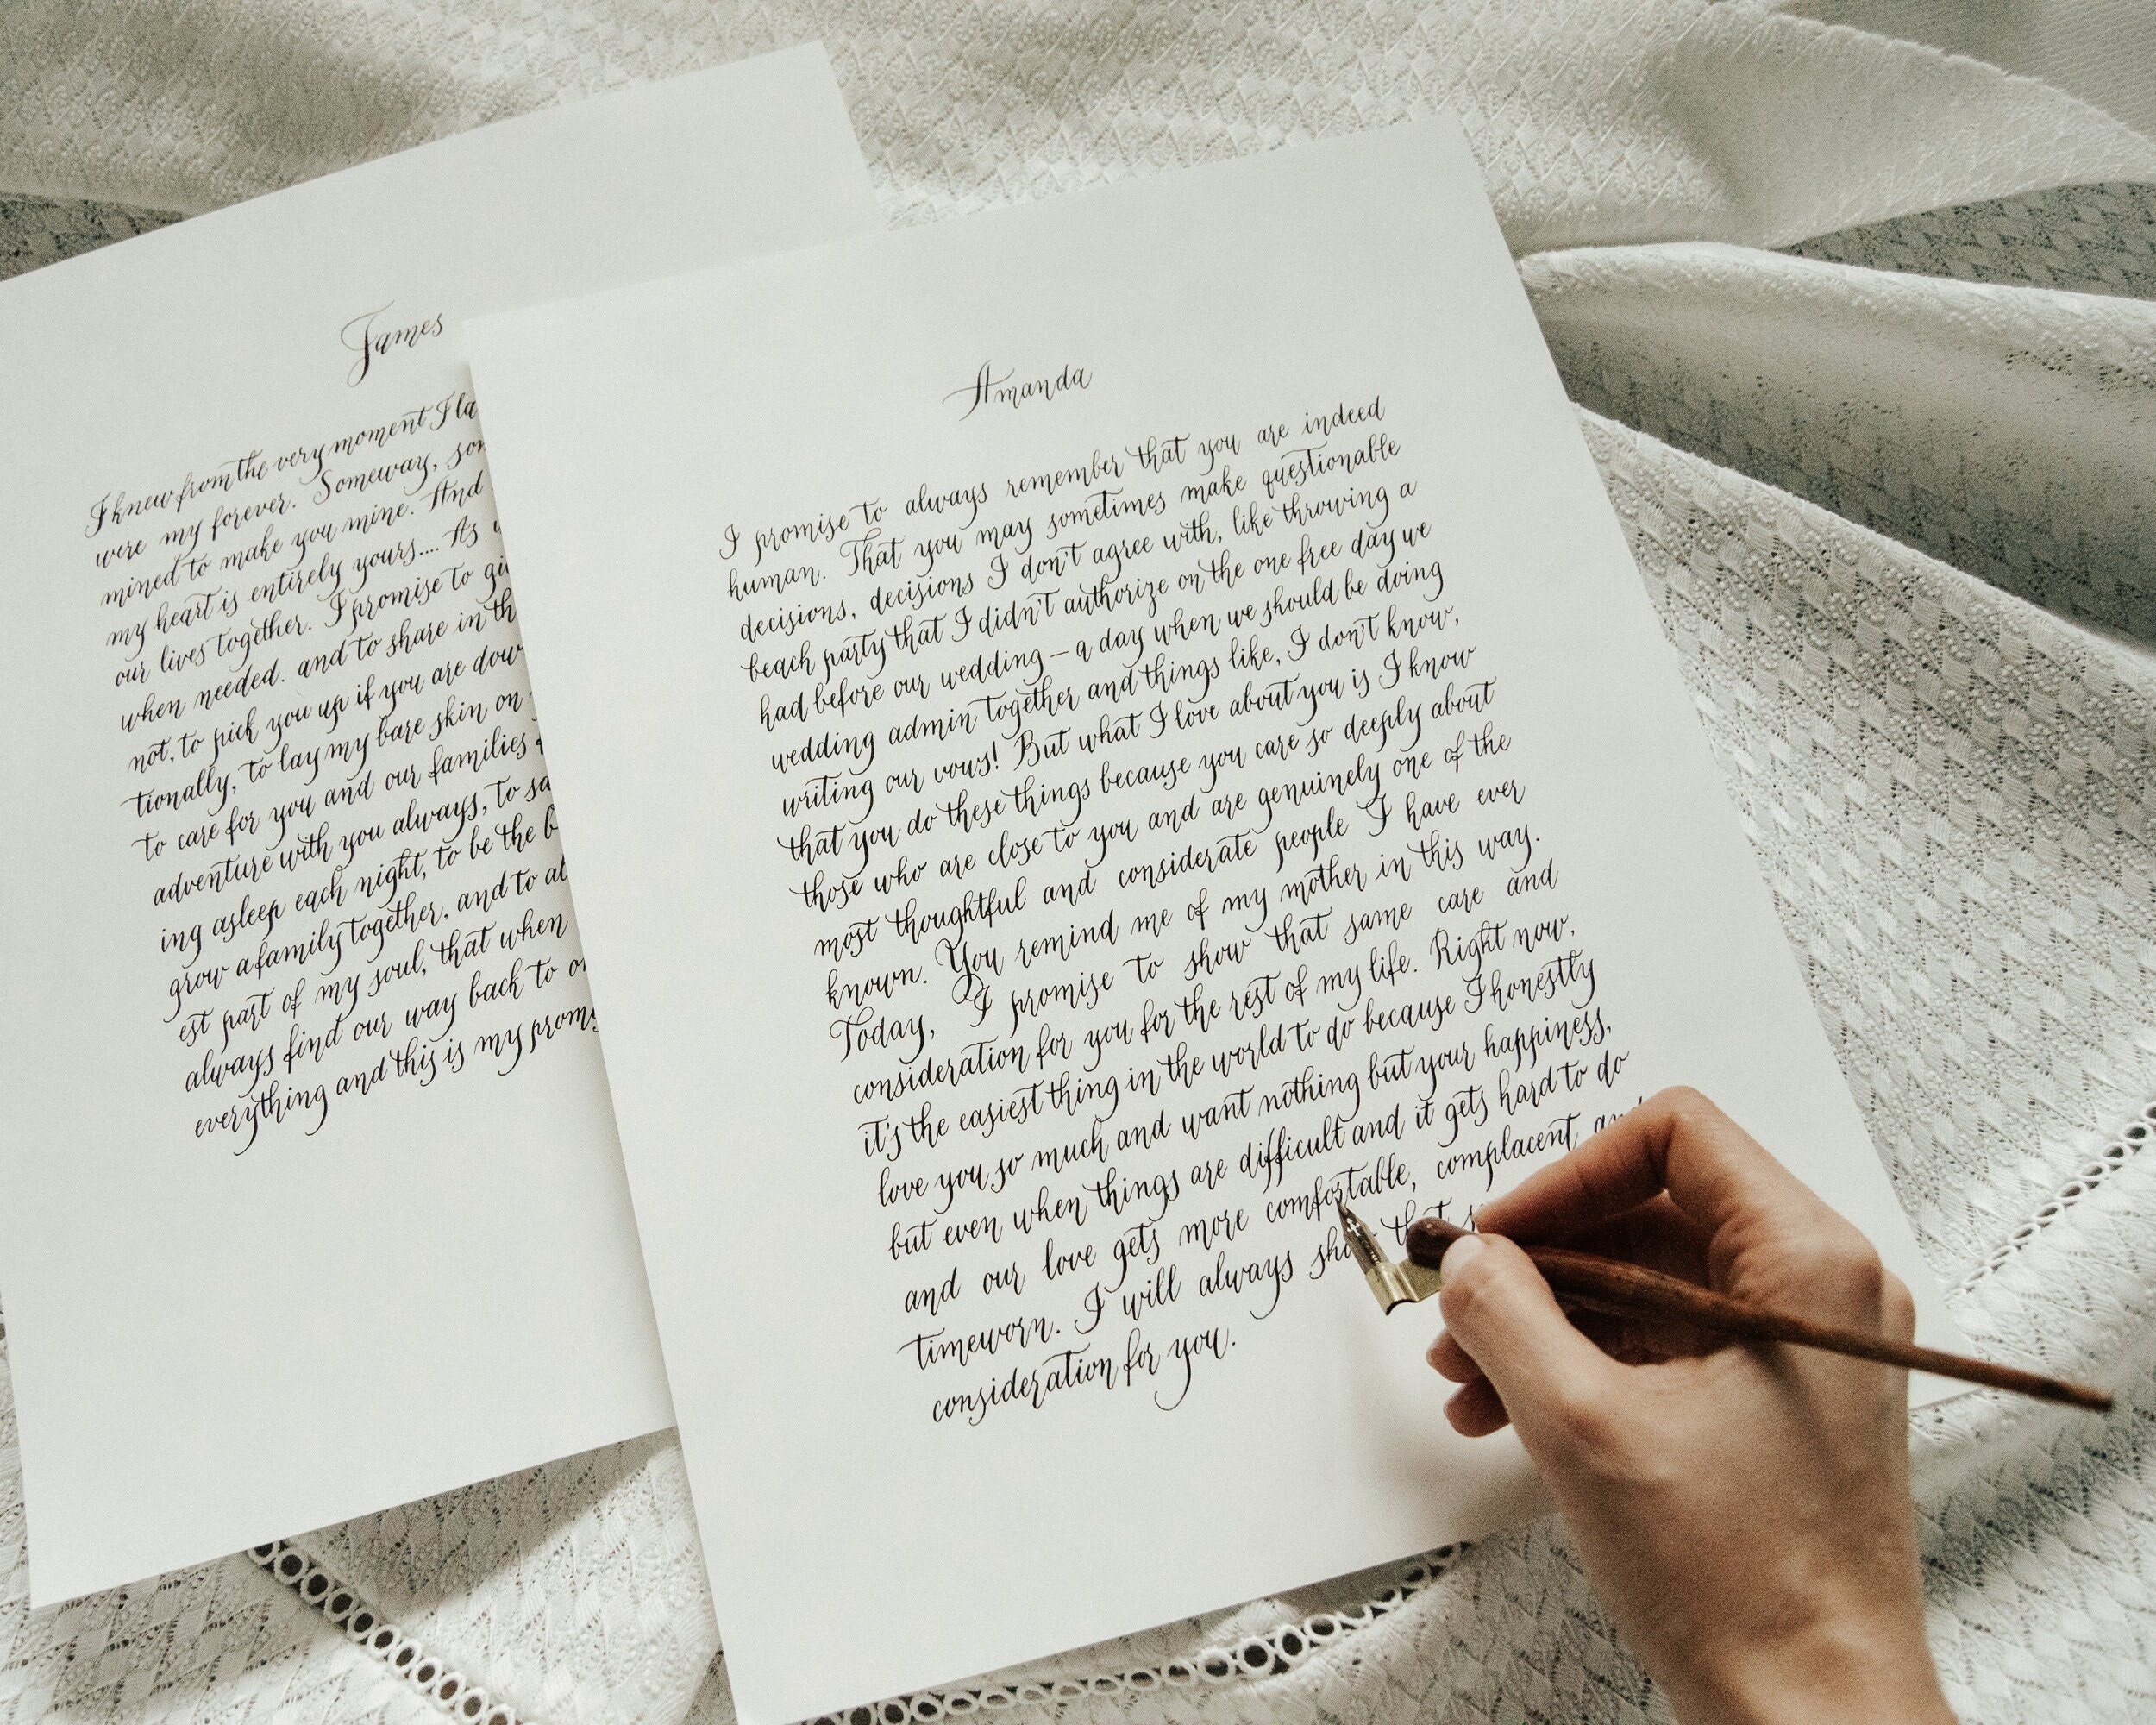 James
I knew from the very moment I la
were my forever. Someway, som
mined to make you mine. And
my heart is entirely yours.... As
our lives together. I promise to gi
when needed. and to share in th
not, to pick you up if you are dow
tionally, to lay my bare skin on
to care for you and our families
adventure with you always, to sa
ing asleep each night, to be the b
grow a family together, and to al
est part of my soul, that when
always find our way back to o
everything and this is my promis
Amanda
I promise to always remember that you are indeed
human. That you may sometimes make questionable
decisions, decisions I don't agree with, like throwing a
beach party that I didn't authorize on the one free day we
had before our wedding – a day when we should be doing
wedding admin together and things like, I don't know,
writing our vows! But what I love about you is I know
that you do these things because you care so deeply about
those who are close to you and are genuinely one of the
most thoughtful and considerate people I have ever
known. You remind me of my mother in this way.
Today, I promise to show that same care and
consideration for you for the rest of my life. Right now,
it's the easiest thing in the world to do because I honestly
love you so much and want nothing but your happiness,
but even when things are difficult and it gets hard to do
and our love gets more comfortable, complacent and
timeworn. I will always show that s
consideration for you.